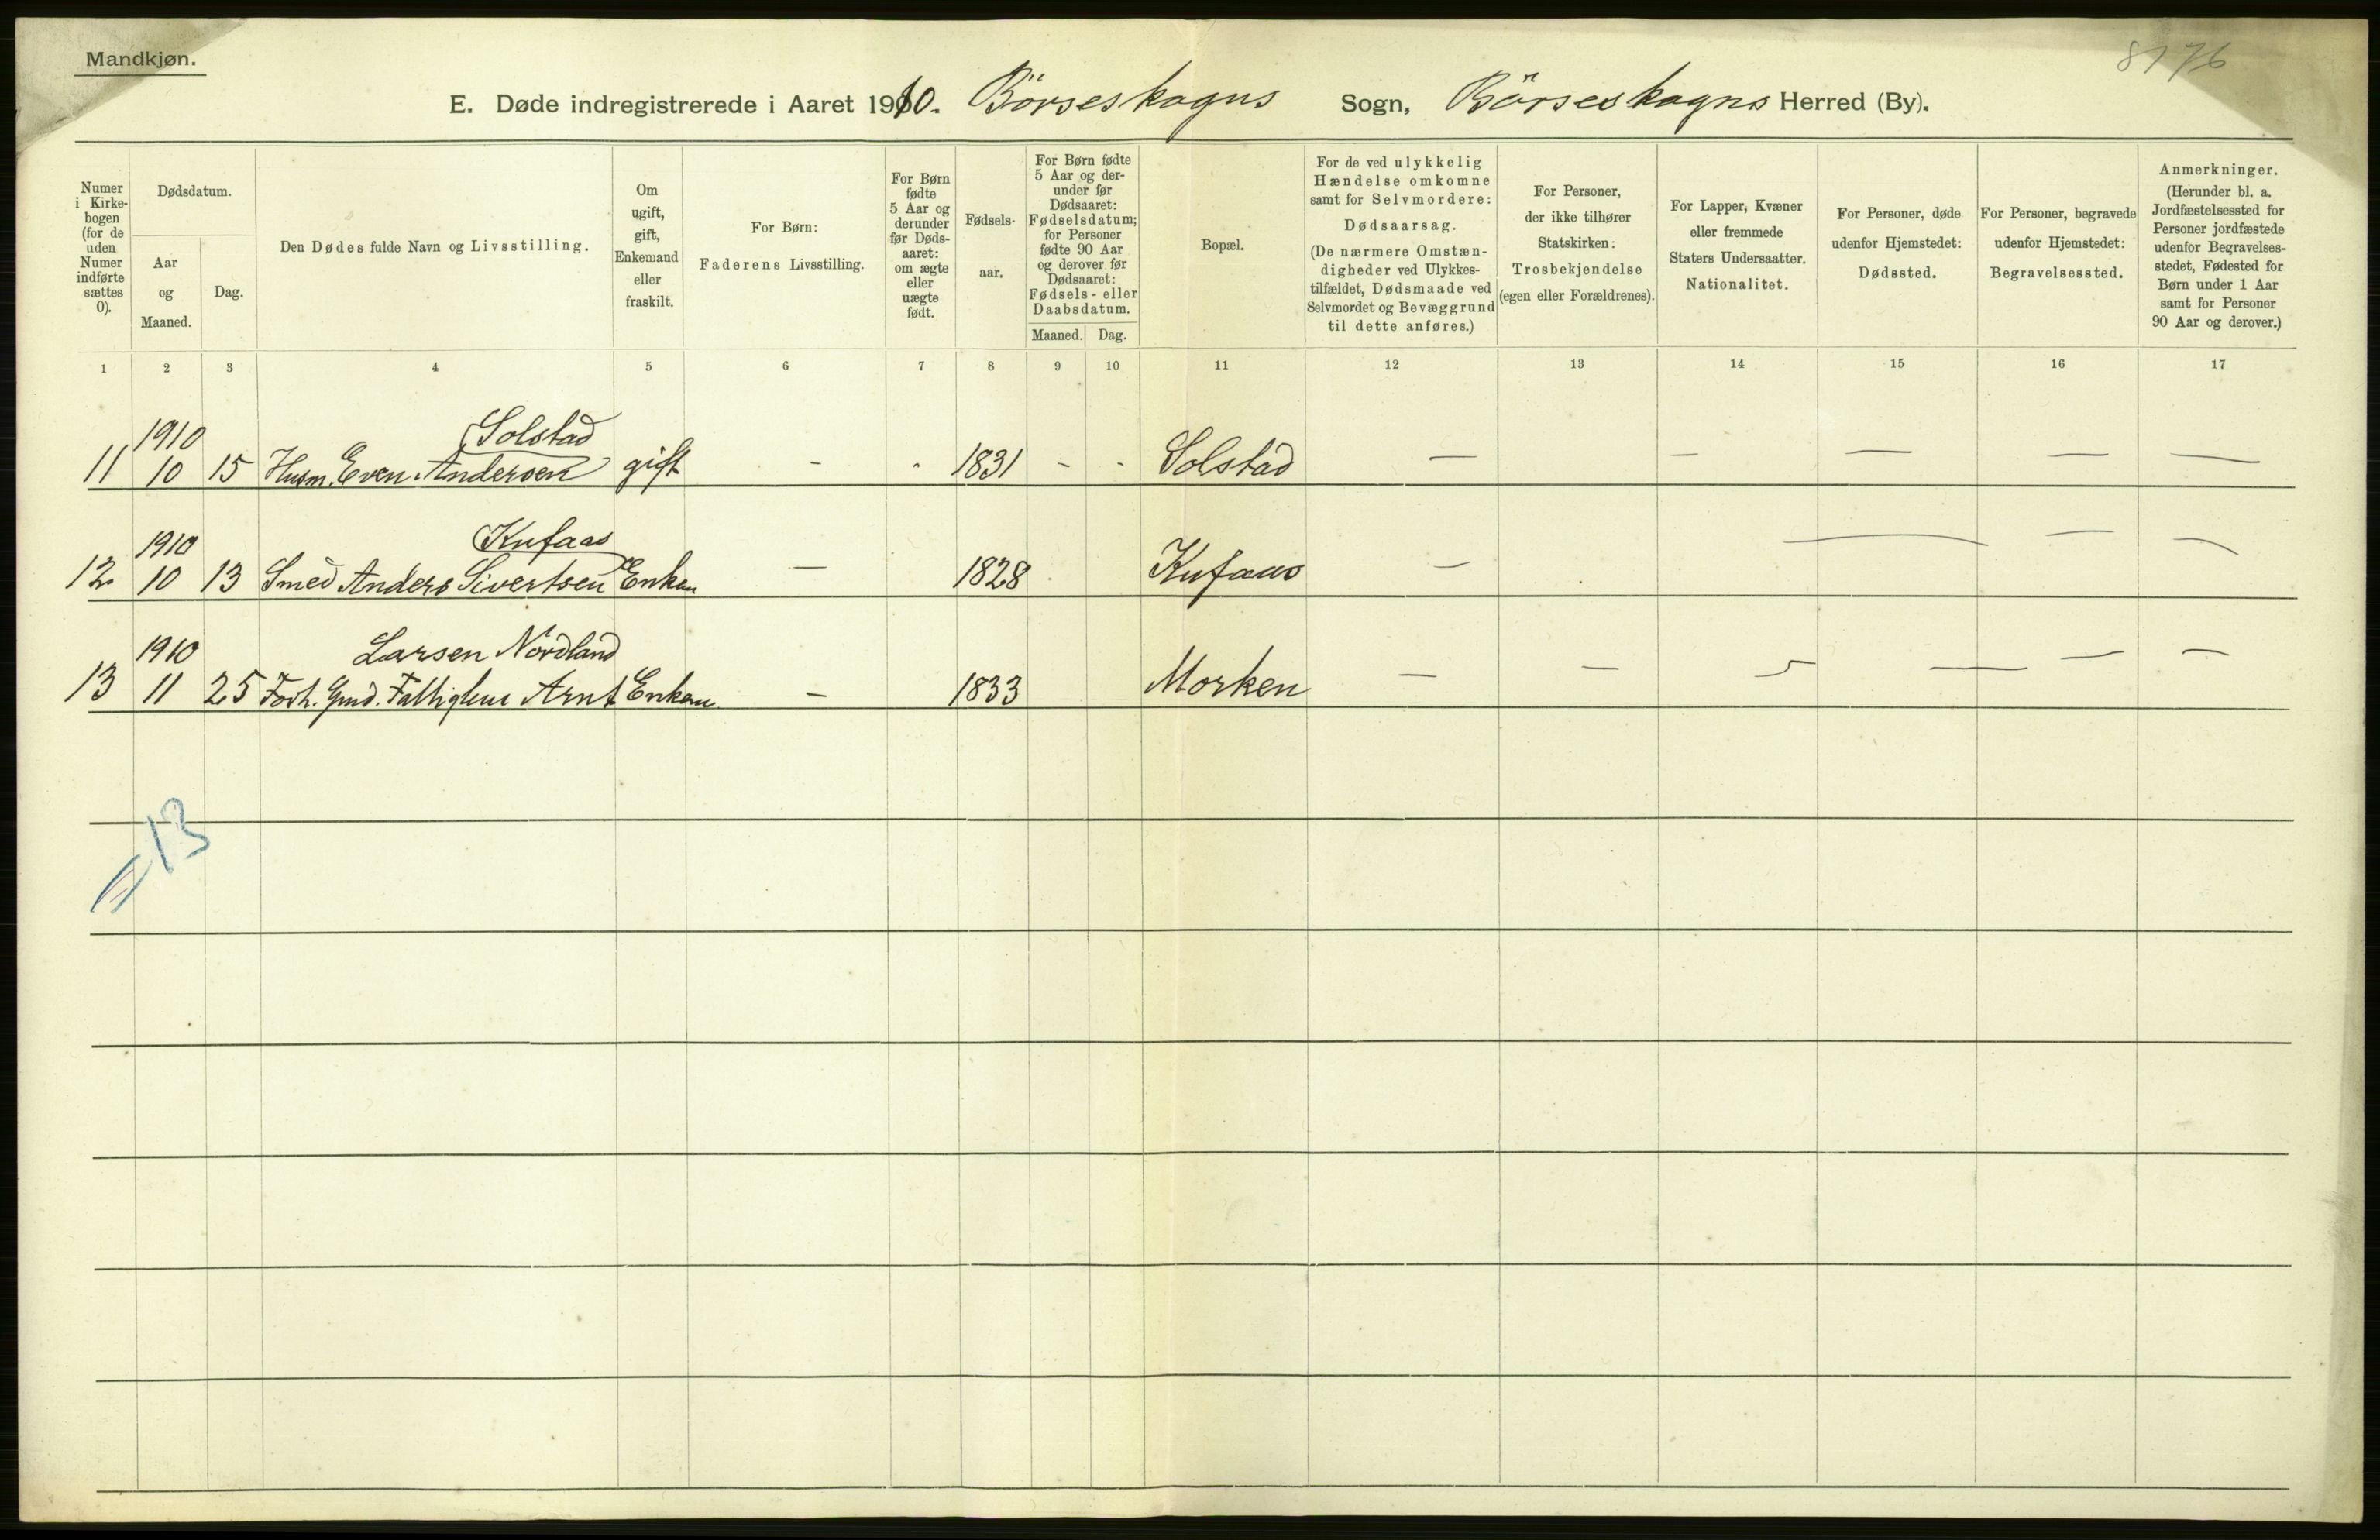 Mandkjøn.
8176
E. Døde indregistrerede i Aaret 1910. Börseskogns Sogn, Börseskogns Herred (By).
Numer i Kirkebogen (for de uden Numer indførte sættes 0).
Dødsdatum.
Aar og Maaned.
Dag.
Den Dødes fulde Navn og Livsstilling.
Om ugift, gift, Enkemand eller fraskilt.
For Børn: Faderens Livsstilling.
For Børn fødte 5 Aar og derunder før Dødsaaret: om ægte eller uægte født.
Fødselsaar.
For Børn fødte 5 Aar og derunder før Dødsaaret: Fødselsdatum; for Personer fødte 90 Aar og derover før Dødsaaret: Fødsels- eller Daabsdatum.
Maaned. Dag.
Bopæl.
For de ved ulykkelig Hændelse omkomne samt for Selvmordere: Dødsaarsag. (De nærmere Omstændigheder ved Ulykkestilfældet, Dødsmaade ved Selvmordet og Bevæggrund til dette anføres.)
For Personer, der ikke tilhører Statskirken: Trosbekjendelse (egen eller Forældrenes).
For Lapper, Kvæner eller fremmede Staters Undersaatter. Nationalitet.
For Personer, døde udenfor Hjemstedet: Dødssted.
For Personer, begravede udenfor Hjemstedet: Begravelsessted.
Anmerkninger. (Herunder bl. a. Jordfæstelsessted for Personer jordfæstede udenfor Begravelsesstedet, Fødested for Børn under 1 Aar samt for Personer 90 Aar og derover.)
1 2 3 4 5 6 7 8 9 10 11 12 13 14 15 16 17
1910 Solstad
11 10 15 Husm. Even Andersen gift - - 1831 - - Solstad — — — — —
1910 Kufaas
12 10 13 Smed Anders Sivertsen Enkem — 1828 Kufaas — — — —
1910 Larsen Nordland
13 11 25 Forh. Gmd. Fattiglem Arnt Enkem — 1833 Morken — — — — — —
13